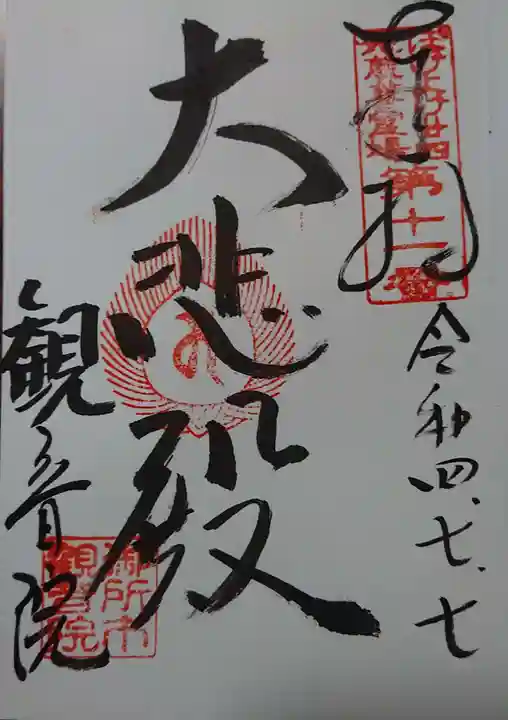 奉拝
第十一番
令和四、七、七
大悲殿
観音院
御所市
観音院